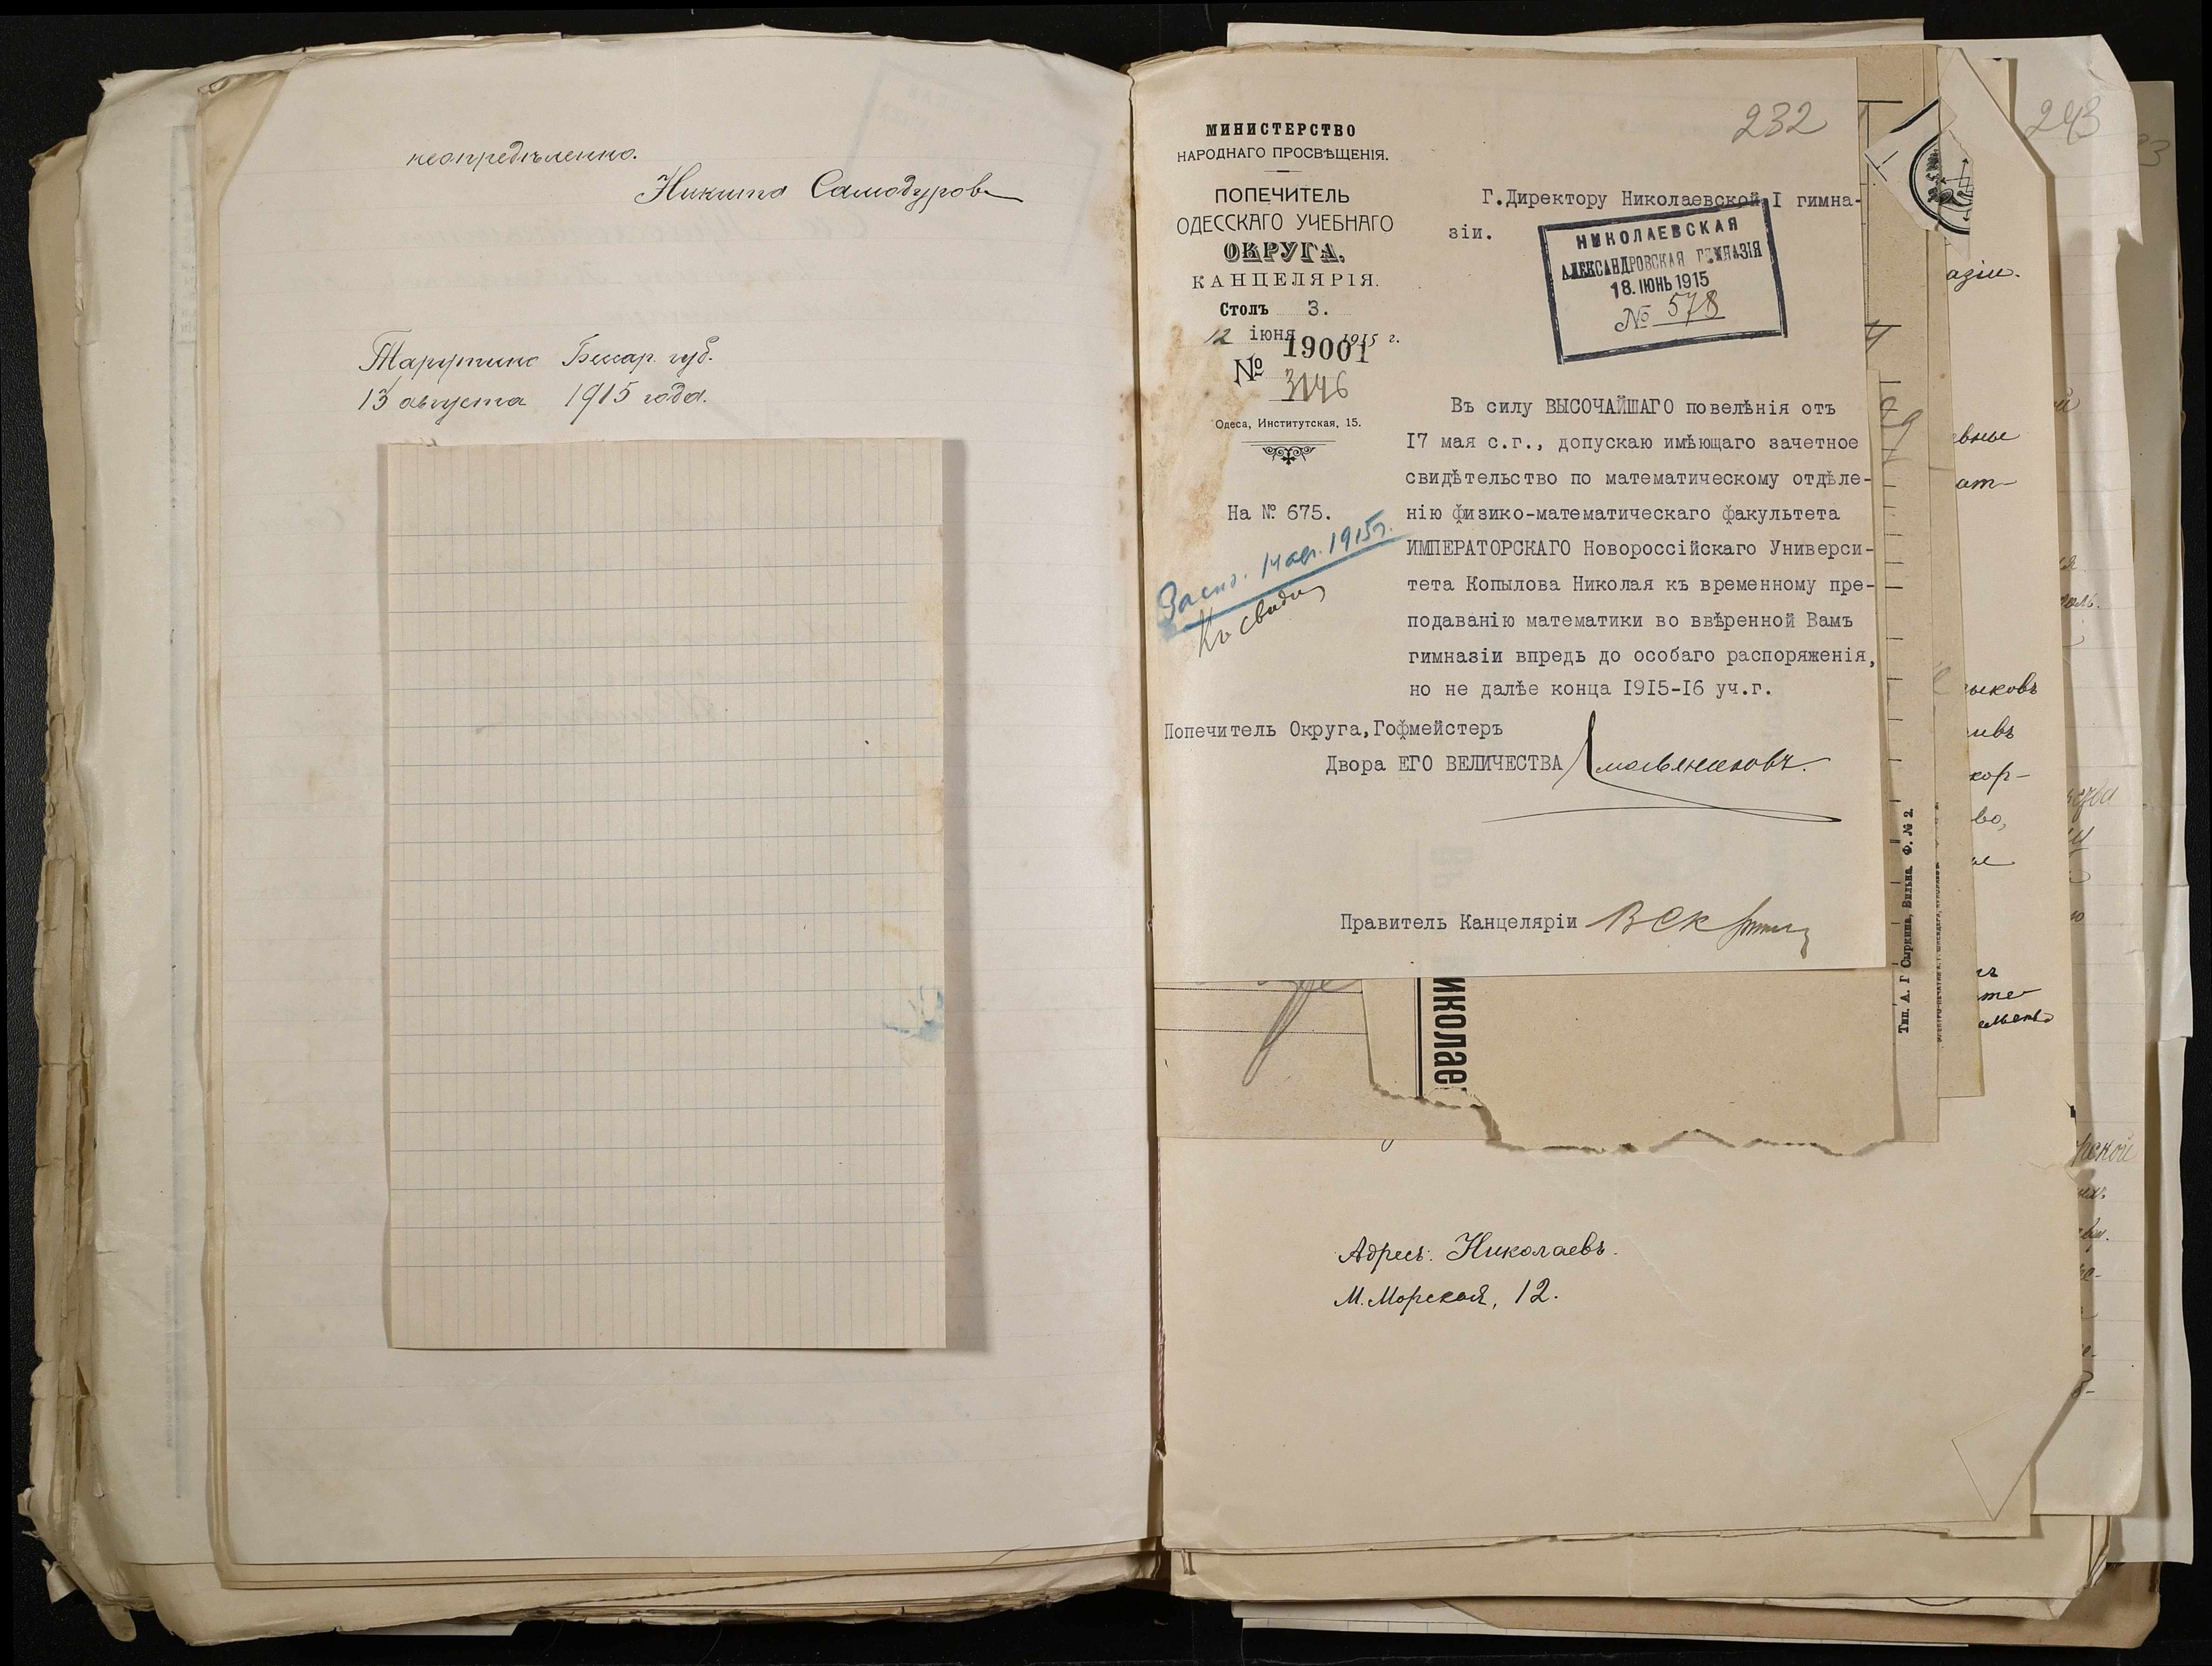 неопредѣленно.
Никита Самодуров
Тарутино Бессар. губ.
13 августа 1915 года.
232
МИНИСТЕРСТВО
НАРОДНАГО ПРОСВѢЩЕНІЯ.
ПОПЕЧИТЕЛЬ
ОДЕССКАГО УЧЕБНАГО
ОКРУГА.
КАНЦЕЛЯРІЯ.
Столъ 3.
12 іюня 1915 г.
19001
№ 3146
Одеса, Институтская, 15.
На № 675.
14 авг. 1915г.
Къ сведен
Г.Директору Николаевской I гимна-
зіи.
НИКОЛАЕВСКАЯ
АЛЕКСАНДРОВСКАЯ ГИМНАЗІЯ
18.ІЮНЬ 1915
№ 578
Въ силу ВЫСОЧАЙШАГО повелѣнія отъ
I7 мая с.г., допускаю имѣющаго зачетное
свидѣтельство по математическому отдѣле-
нію физико-математическаго факультета
ИМПЕРАТОРСКАГО Новороссійскаго Универси-
тета Копылова Николая къ временному пре-
подаванію математики во ввѣренной Вамъ
гимназіи впредь до особаго распоряженія,
но не далѣе конца I9I5-I6 уч.г.
Попечитель Округа,Гофмейстеръ
Двора ЕГО ВЕЛИЧЕСТВА Смольяниновъ.
Правитель Канцеляріи
иколае
Адресъ: Николаевъ.
М.Морская, 12.
Тип. А. Г. Сыркина, Вильна. Ф. № 2.
243
азіи.
евные
ат-
зыковъ
ивъ
кор-
во,